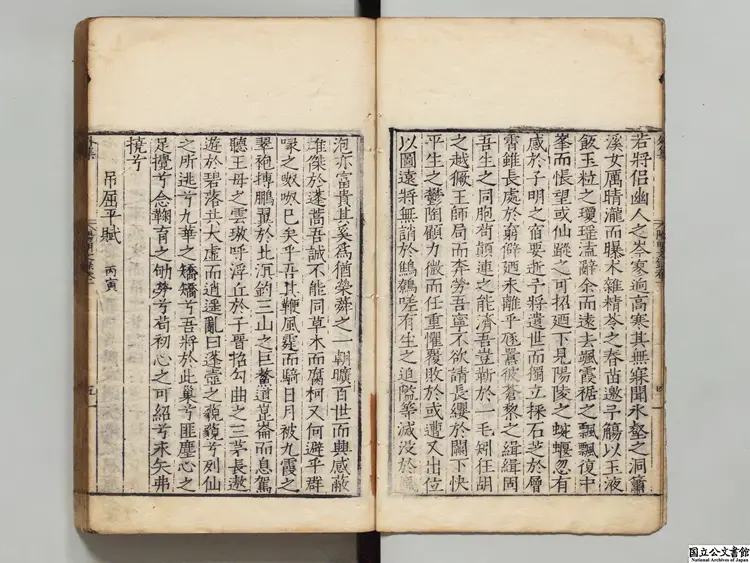 若將侶幽人之岑寂逈高寒其無寐聞氷壑之洞簫
溪女厲晴瀧而曝术雜精苓之春苗邀予觴以玉液
飯玉粒之瓊瑶溘辭余而遠去颯霞裾之飄飄復中
峯而悵望或仙蹤之可招廼下見陽陵之蜿蜒忽有
感於子明之宿要逝予將遺世而獨立採石芝於層
霄雖長處於窮僻廼永離乎豗囂彼蒼黎之緝緝固
吾生之同胞苟顛連之能濟吾豈靳於一毛矧狂胡
之越獗王師局而奔勞吾寧不欲請長纓於闕下快
平生之鬱陶顧力微而任重懼覆敗於或遭又出位
以圖遠將無誚於鷦鷯嗟有生之迫隘等滅没於風
泡亦富貴其奚爲猶榮蕣之一朝曠百世而興感蔽
雄傑於蓬蒿吾誠不能同草木而腐朽又何避乎群
喙之呶呶已矣乎吾其鞭風霆而騎日月被九霞之
翠袍搏鵬翼於北溟釣三山之巨鰲道崑崙而息駕
聽王母之雲璈呼浮丘於子晋招勾曲之三茅長遨
遊於碧落共太虚而逍遥亂曰蓬壺之藐藐兮列仙
之所逃兮九華之矯矯兮吾將於此巢兮匪塵心之
足攪兮念鞠育之劬勞兮苟初心之可紹兮永矢弗
撓兮
吊屈平賦 丙寅
国立公文書館
National Archives of Japan